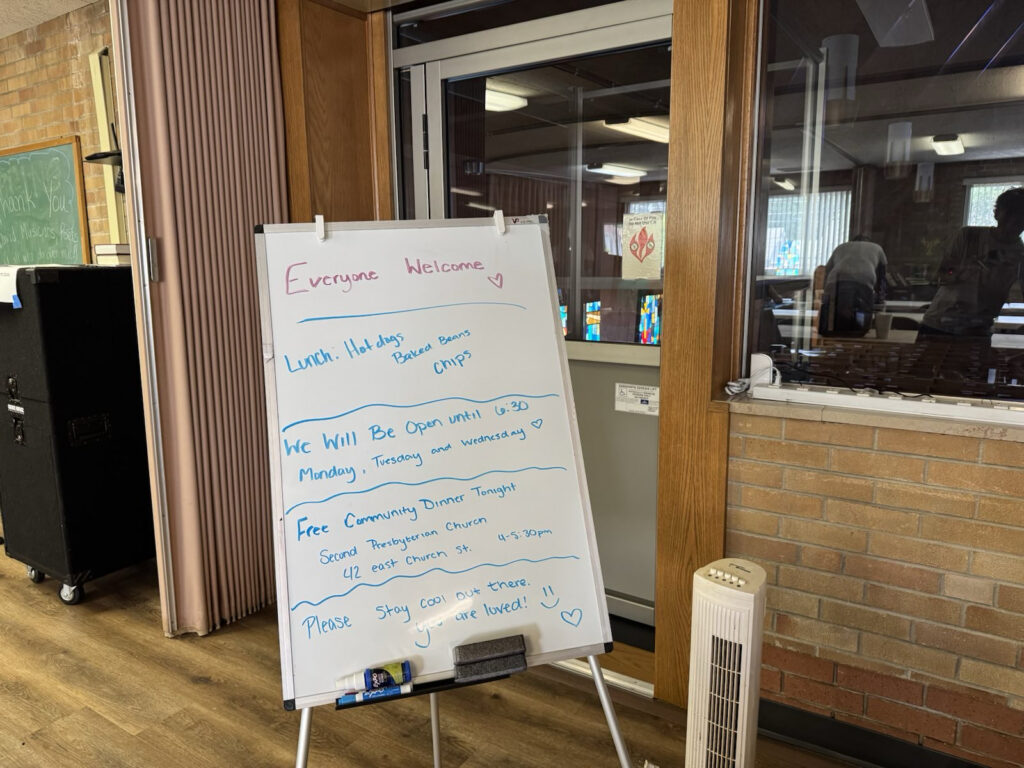 Everyone Welcome
Lunch: Hotdogs
Baked Beans
Chips
We Will Be Open until 6:30
Monday, Tuesday and Wednesday
Free Community Dinner Tonight
Second Presbyterian Church
42 east Church St. 4-5:30pm
Please Stay cool out there.
you are loved!
Thank You